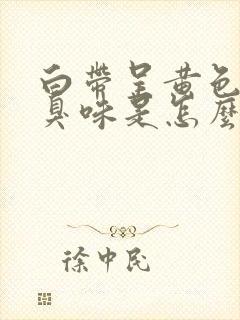 白帶呈黃色
臭味是怎麼
徐中民